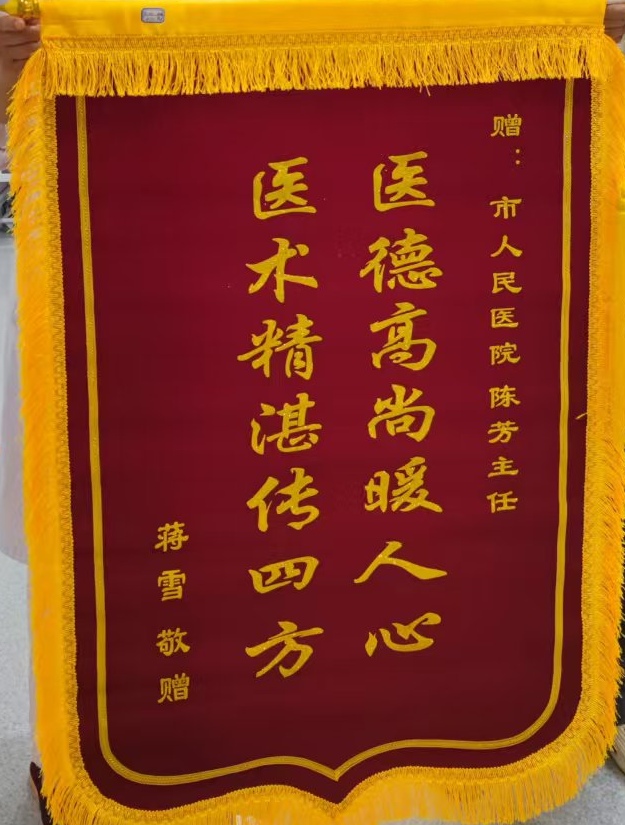 赠：市人民医院 陈芳主任
医德高尚暖人心
医术精湛传四方
蒋雪 敬赠